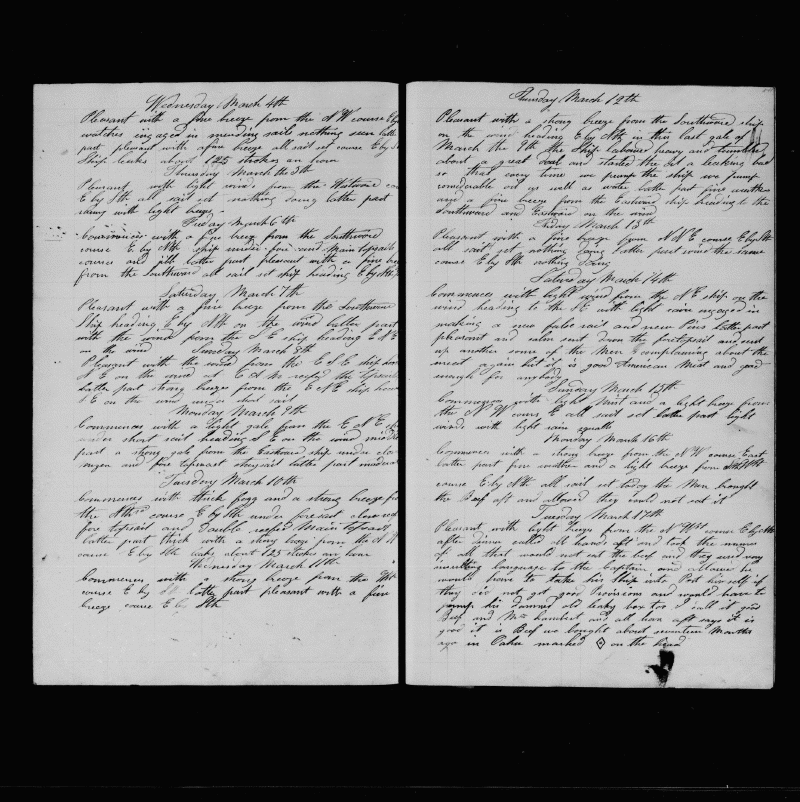 Wednesday March 4th
Pleasant with a fine breeze from the NW course E by
watches engaged in mending sails nothing seen latter
part pleasant with a fine breeze all sail set course E by
Ship leaks about 125 strokes an hour
Thursday March the 5th
Pleasant with light wind from the Westward
E by Nth all sail set nothing latter part
with light breeze
Friday March 6th
Commences with a fine breeze from the Southward
course E by Nth ship under fore and Main topsails
courses and jib latter part pleasant with a fine
from the Southward all sail set ship heading E by Nth
Saturday March 7th
Pleasant with a fine breeze from the Southward
Ship heading E by Nth on the wind latter part
with the wind from the S E ship heading E N E
on the wind Sunday March 8th
Pleasant with the wind from the E S E ship
N E on the wind at reefed the topsails
latter part strong breeze from the E N E ship
S E on the wind under short sail
Monday March 9th
Commences with a light gale from the E N E
under short sail heading S E on the wind middle
part a strong gale from the Eastward ship under close
and fore topmast staysail latter part
Tuesday March 10th
Commences with thick fogg and a strong breeze
the Nthd course E by Nth under foresail close reef
fore topsail and Double reefed Main topsail
latter part thick with a strong breeze from the N
course E by Nth leaks about 125 strokes an hour
Wednesday March 11th
Commences with a strong breeze from the
course E by latter part pleasant with a fine
breeze course E by Nth
Thursday March 12th
Pleasant with a strong breeze from the Southward ship
on the wind heading E by Nth in this last gale of
March the 9th the Ship laboured heavy and
about a great and started the oil a leaking bad
so that every time we pump the ship we pump
considerable oil as well as water latter part fine weather
and a fine breeze from the Eastward ship heading to the
Southward and Eastward on the wind
Friday March 13th
Pleasant with a fine breeze from N N E course E by Sth
all sail set nothing latter part wind the same
course E by Sth nothing
Saturday March 14th
Commences with light wind from the N E ship on the
wind heading to the SE with light rain engaged in
making a new sail and new latter part
pleasant and calm sent down the foretopsail and sent
up another some of the Men complaining about the
meat again but it is good American Meat and good
enough for anybody
Sunday March 15th
Commences with light Mist and a light breeze from
the N W course E all sail set latter part light
wind with light rain squalls
Monday March 16th
Commences with a strong breeze from the N W course East
latter part fine weather and a light breeze from
course E by Nth all sail set today the Men brought
the Beef aft and allowed they could not eat it
Tuesday March 17th
Pleasant with light from the N course E by Nth
after dinner called all hands aft and took the names
of all that would not eat the beef and they used very
language to the Captain and allowed he
would have to take his Ship into Port himself if
they did not get good Provisions and would have to
pump his damned old leaky box too I call it good
Beef and Mr Lambert and all hands aft says it is
good it is Beef we bought about seventeen Months
ago in marked on the head